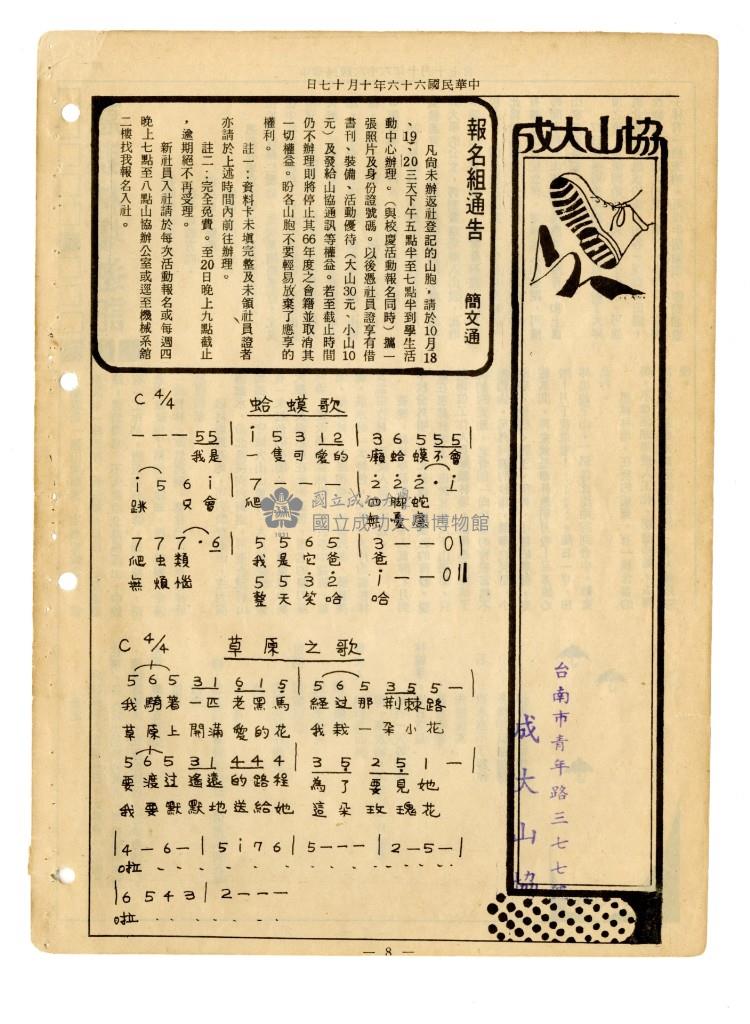 中華民國六十六年十月十七日
成大山協
報名組通告　簡文通
凡尚未辦返社登記的山胞，請於10月18
、19、20三天下午五點半至七點半到學生活
動中心辦理。（與校慶活動報名同時）攜一
張照片及身份證號碼。以後憑社員證享有借
書刊、裝備、活動優待（大山30元、小山10
元）及發給山協通訊等權益。若至截止時間
仍不辦理則將停止其66年度之會籍並取消其
一切權益。盼各山胞不要輕易放棄了應享的
權利。
註一：資料卡未填完整及未領社員證者
亦請於上述時間內前往辦理。
註二：完全免費。至20日晚上九點截止
，逾期絕不再受理。
新社員入社請於每次活動報名或每週四
晚上七點至八點山協辦公室或逕至機械系館
二樓找我報名入社。
C 4/4 蛤蟆歌
— — — 55 | i 5 3 12 | 3 6 5 55 |
我是 一隻可愛的 癩蛤蟆不會
i 5 6 i | 7 — — — | 2 2 2 · 1
跳 只會 爬 四腳蛇
無憂慮
7 7 7 · 6 | 5 5 6 5 | 3 — — 0 |
爬虫類 我是它爸 爸
無煩惱 5 5 3 2 | i — — 0 ||
整天笑哈 哈
C 4/4 草原之歌
5 6 5 31 61 5 | 5 6 5 35 5 — |
我騎著一匹老黑馬 経过那荆棘路
草原上開滿愛的花 我栽一朵小花
5 6 5 31 44 4 | 3 5 2 5 1 — |
要渡过遙遠的路程 為了要見她
我要默默地送給她 這朵玫瑰花
| 4 — 6 — | 5 i 7 6 | 5 — — — | 2 — 5 — |
啦 . . . . . . . . . . . . .
| 6 5 4 3 | 2 — — —
啦 . . . . . . .
國立成功大學
國立成功大學博物館
1931
台南市青年路三七七號
成大山協
— 8 —